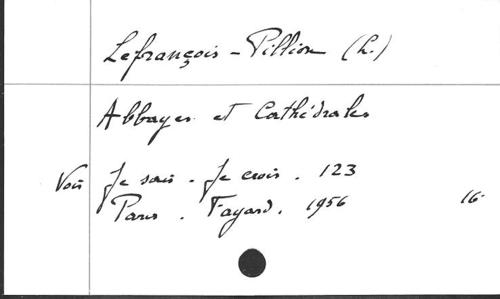 Lefrançois - Pillion (L.)
Abbayes et Cathédrales
Voir Je sais - Je crois. 123
Paris. Fayard. 1956 16-